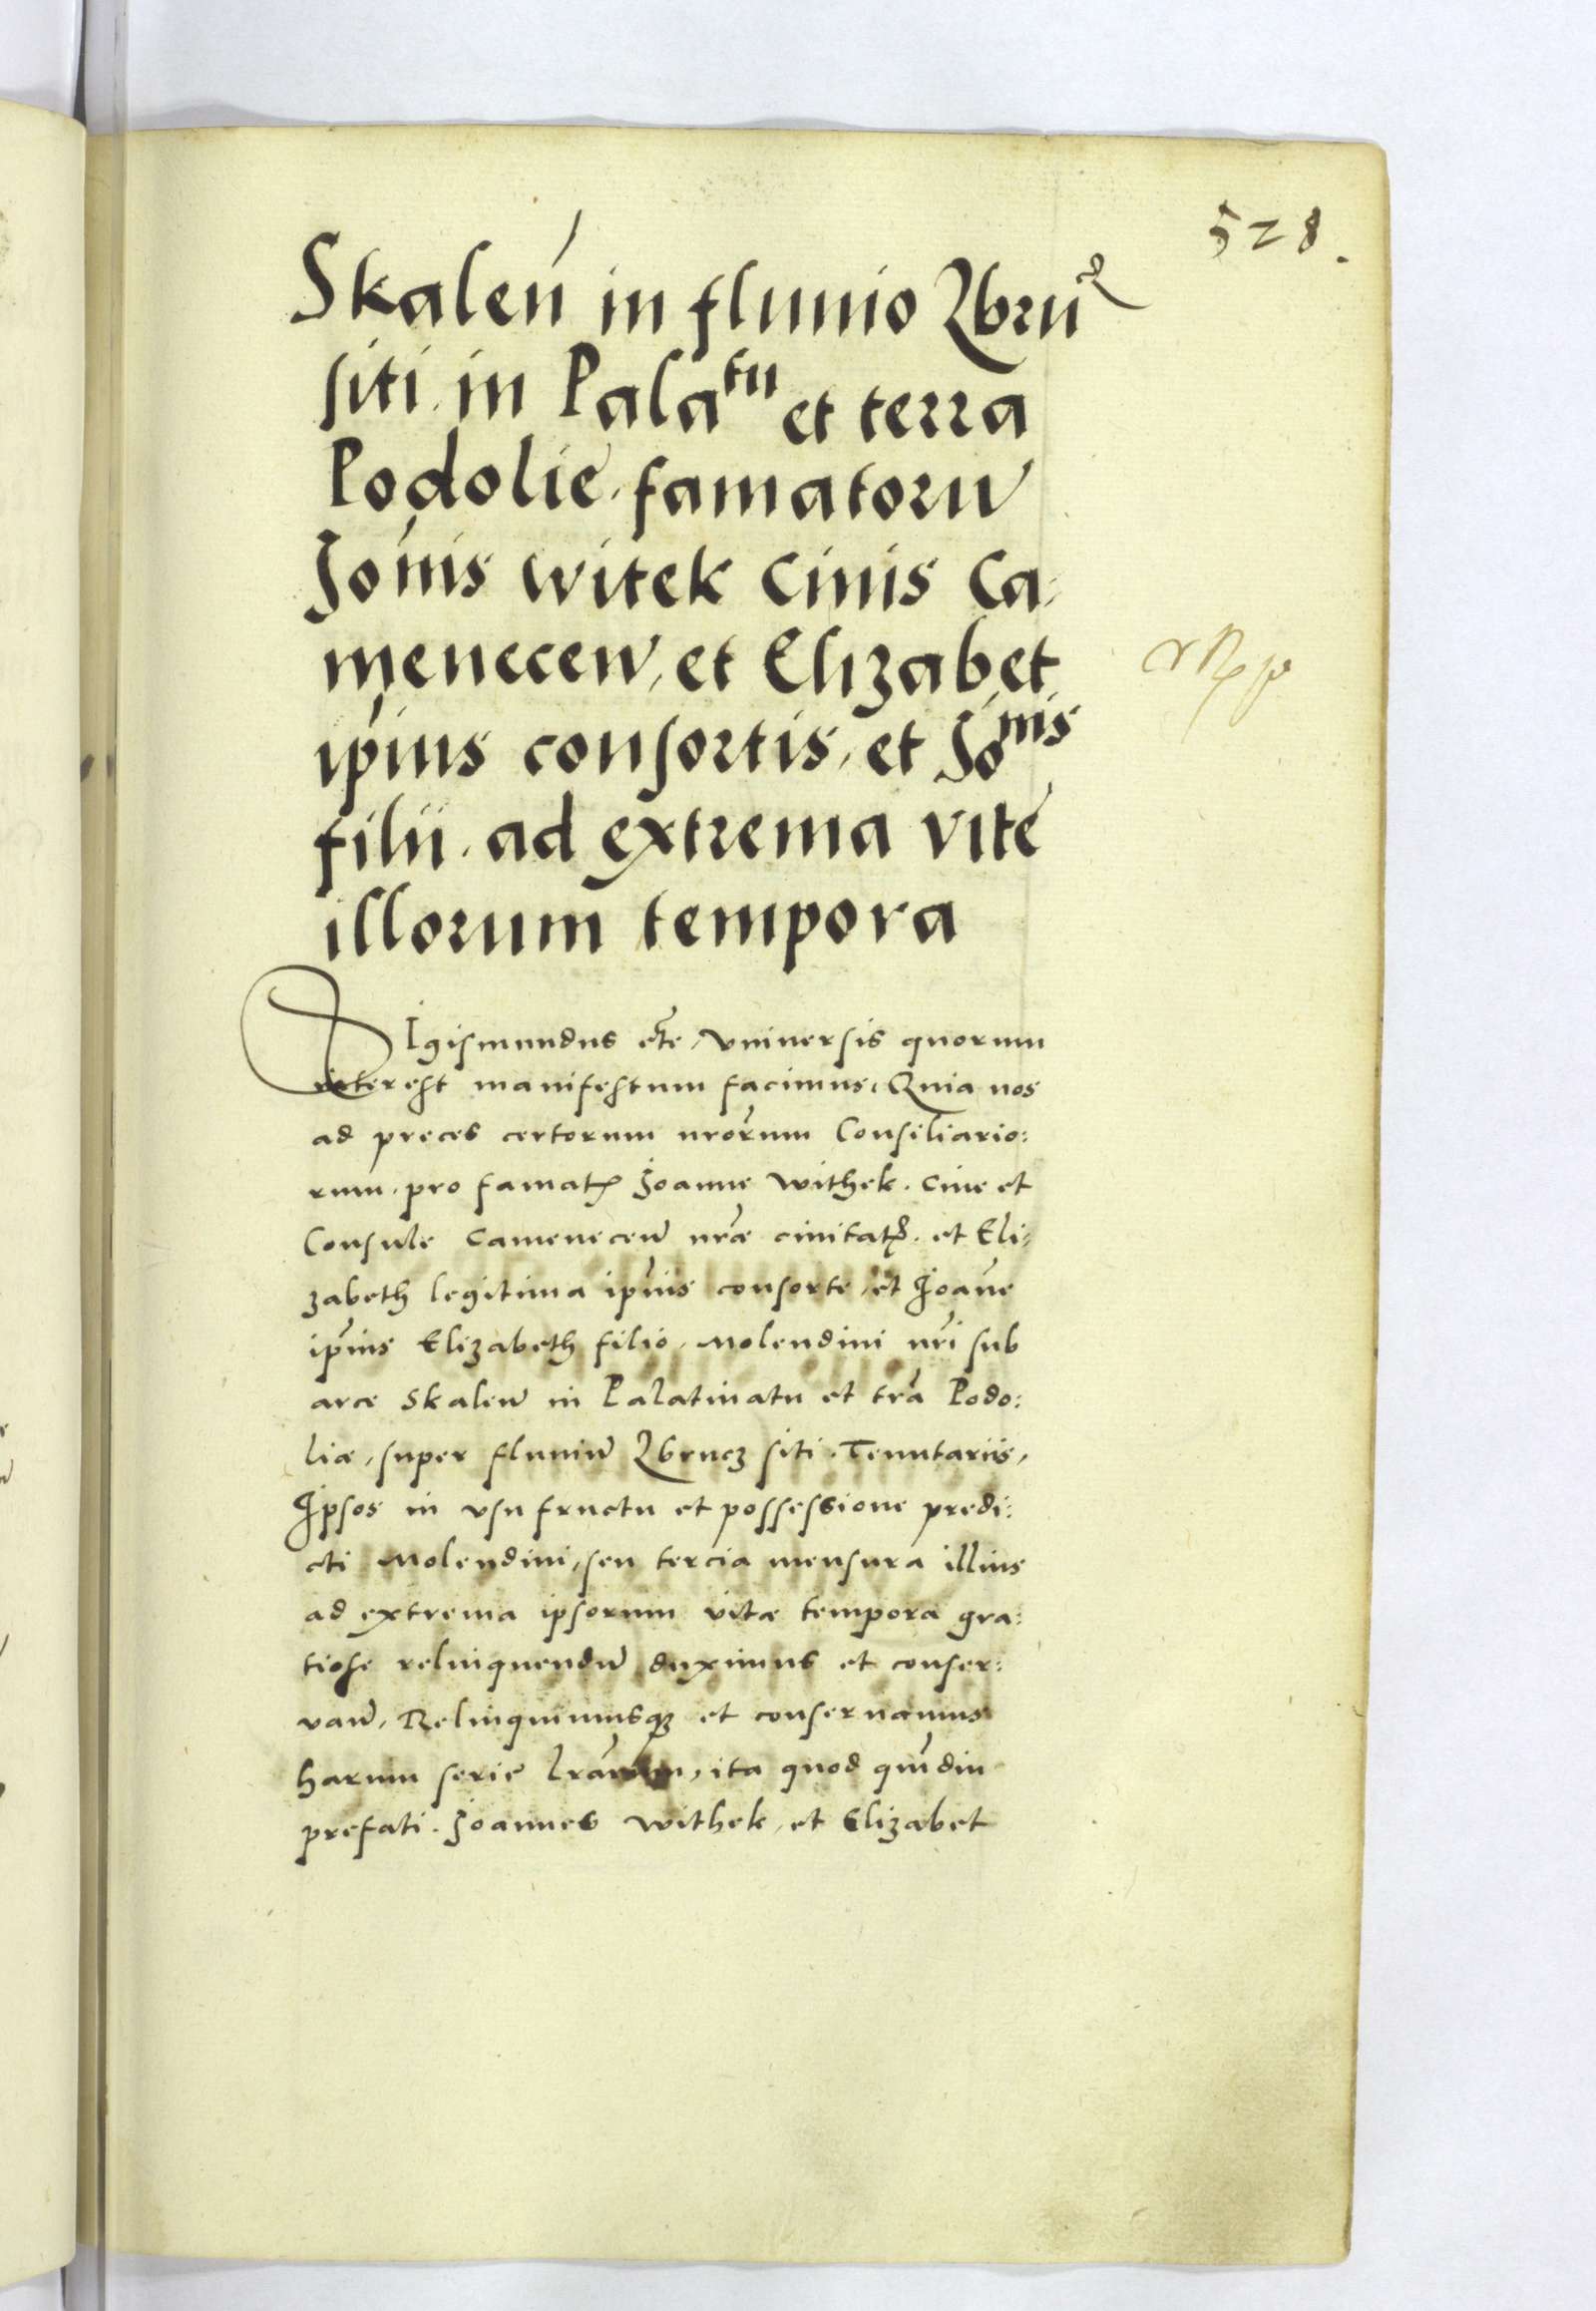 528.
Skaleń in fluuio Zbrucz
siti. in Palatu et terra
Podolie. famatorũ
Joñis witek Ciuis Ca-
menecceñ, et Elizabet
ip̃ius consortis, et Jonis
filii. ad extrema vite
illorum tempora
SIgismundus etc̃. Vniuersis quorum
interest manifestum facimus. Quia nos
ad preces certorum nrõrum Consiliario:
rum. pro famatis Joanne Withek. Ciue et
Consule Cameneceñ nrãe ciuitatis. et Eli-
zabeth legitima ip̃ius consorte, et Joañe
ip̃ius Elizabeth filio. Molendini nrĩ sub
arce Skaleñ in Palatinatu et trã Podo:
liæ, super fluuiũ Zbrucz siti. Tenutariis,
Ipsos in vsufructu et possessione predi:
cti Molendini, seu tercia mensura illius
ad extrema ipsorum vitæ tempora gra:
tiose relinquendũ duximus et conser:
vañ. Relinquimusq3 et conseruamus
harum serie lrãrum, ita quod qm̃diu
prefati. Joannes Withek, et Elizabet